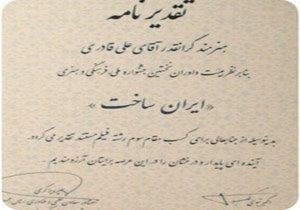 تقدیر نامه
هنرمند گرانقدر آقای علی قادری
بنابر نظر هیئت داوران نخستین جشنواره ملی، فرهنگی و هنری
« ایران ساخت »
بدینوسیله از جنابعالی برای کسب مقام سوم رشته فیلم مستند تقدیر می گردد.
آینده ای پایدار و درخشان را در این عرصه برایتان آرزومندیم.